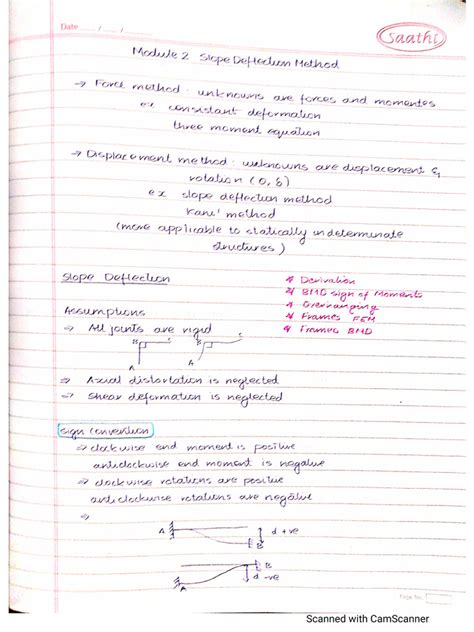 Date ___/___/___
Saathi
Module 2 Slope Deflection Method
→ Force method : unknowns are forces and momentes
ex consistant deformation
three moment equation
→ Displacement method : unknowns are displacement &
rotation (θ, δ)
ex slope deflection method
Kani' method
(more applicable to statically indeterminate
structures)
Slope Deflection
* Derivation
* BMD sign of Moments
* Overhanging
* Frames FEM
* Frames BMD
Assumptions
⇒ All joints are rigid
B C B C
A A
⇒ Axial distortation is neglected
⇒ Shear deformation is neglected
Sign Convention
⇒ clockwise end moment is positive
anticlockwise end moment is negative
⇒ clockwise rotations are positive
anticlockwise rotations are negative
⇒
A B d +ve
B
A d -ve
Page No.
Scanned with CamScanner